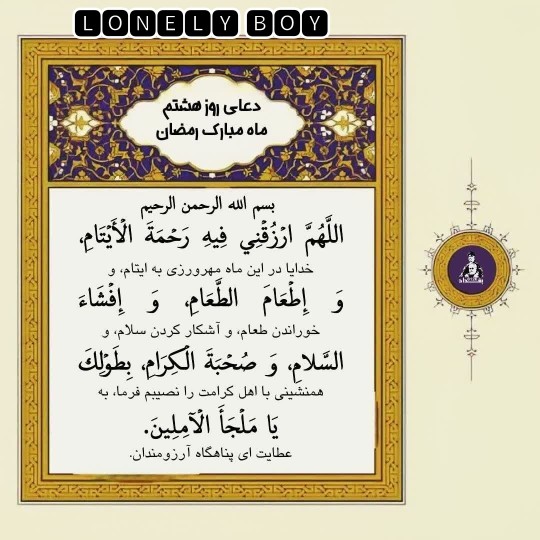 LONELY BOY
دعای روز هشتم
ماه مبارک رمضان
بسم الله الرحمن الرحیم
اللَّهُمَّ ارْزُقْنِي فِيهِ رَحْمَةَ الْأَيْتَامِ،
خدایا در این ماه مهرورزی به ایتام، و
وَ إِطْعَامَ الطَّعَامِ، وَ إِفْشَاءَ
خوراندن طعام، و آشکار کردن سلام، و
السَّلامِ، وَ صُحْبَةَ الْكِرَامِ، بِطَوْلِكَ
همنشینی با اهل کرامت را نصیبم فرما، به
يَا مَلْجَأَ الْآمِلِينَ.
عطایت ای پناهگاه آرزومندان.